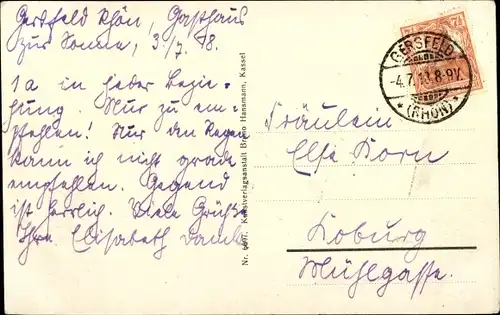 Gersfeld Rhön, Gasthaus
zur Sonne, 3/7. 18.
1a in jeder Bezie-
hung. Nur zu em-
pfehlen! Nur den Regen
kann ich nicht grade
empfehlen. Gegend
ist herrlich. Viele Grüße
Ihre Elisabeth
Nr. 6607. Kunstverlagsanstalt Bruno Hansmann, Kassel
GERSFELD
-4.7.18.8-9V.
*(RHÖN)*
7½
Fräulein
Else Korn
Koburg
Mühlgasse.